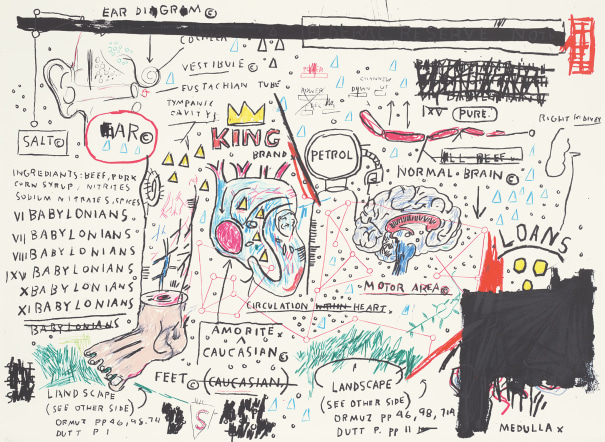 EAR DIAGRAM©
COCHLEA
VESTIBULE©
EUSTACHIAN TUBE
TYMPANIC
CAVITY
SALT©
EAR©
KING
BRAND
PETROL
XV
PURE.
ALL BEEF.
NORMAL BRAIN©
RIGHT KIDNEY
INGREDIANTS: BEEF, PORK
CORN SYRUP, NITRITES
SODIUM NITRATES, SPICES
VI BABYLONIANS
VII BABYLONIANS
VIII BABYLONIANS
IXV BABYLONIANS
X BABYLONIANS
XI BABYLONIANS
BABYLONIANS
LOANS
MOTOR AREA©
CIRCULATION WITHIN HEART.
AMORITE X
CAUCASIAN©
(CAUCASIAN)
FEET©
LANDSCAPE
(SEE OTHER SIDE)
ORMUZ PP 46, 98, 711
DUTT P 1
S
LANDSCAPE
(SEE OTHER SIDE)
ORMUZ PP 46, 98, 711
DUTT P. PP 11
MEDULLA X